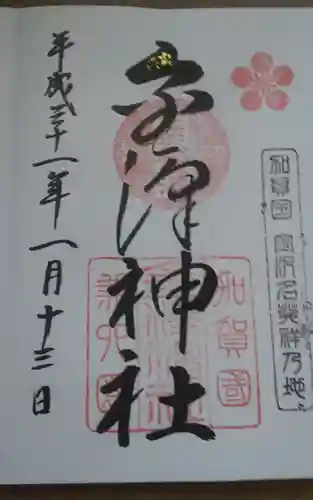 加賀国 金沢名発祥乃地
金澤神社
加賀國
金澤神社
兼六園
平成三十一年一月十三日